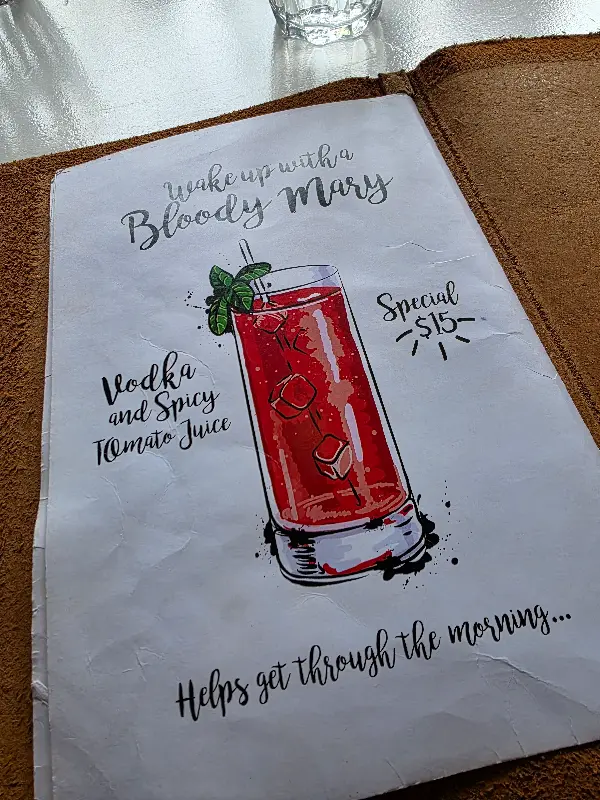 Wake up with a
Bloody Mary
Special
$15
Vodka
and Spicy
TOmato Juice
Helps get through the morning...